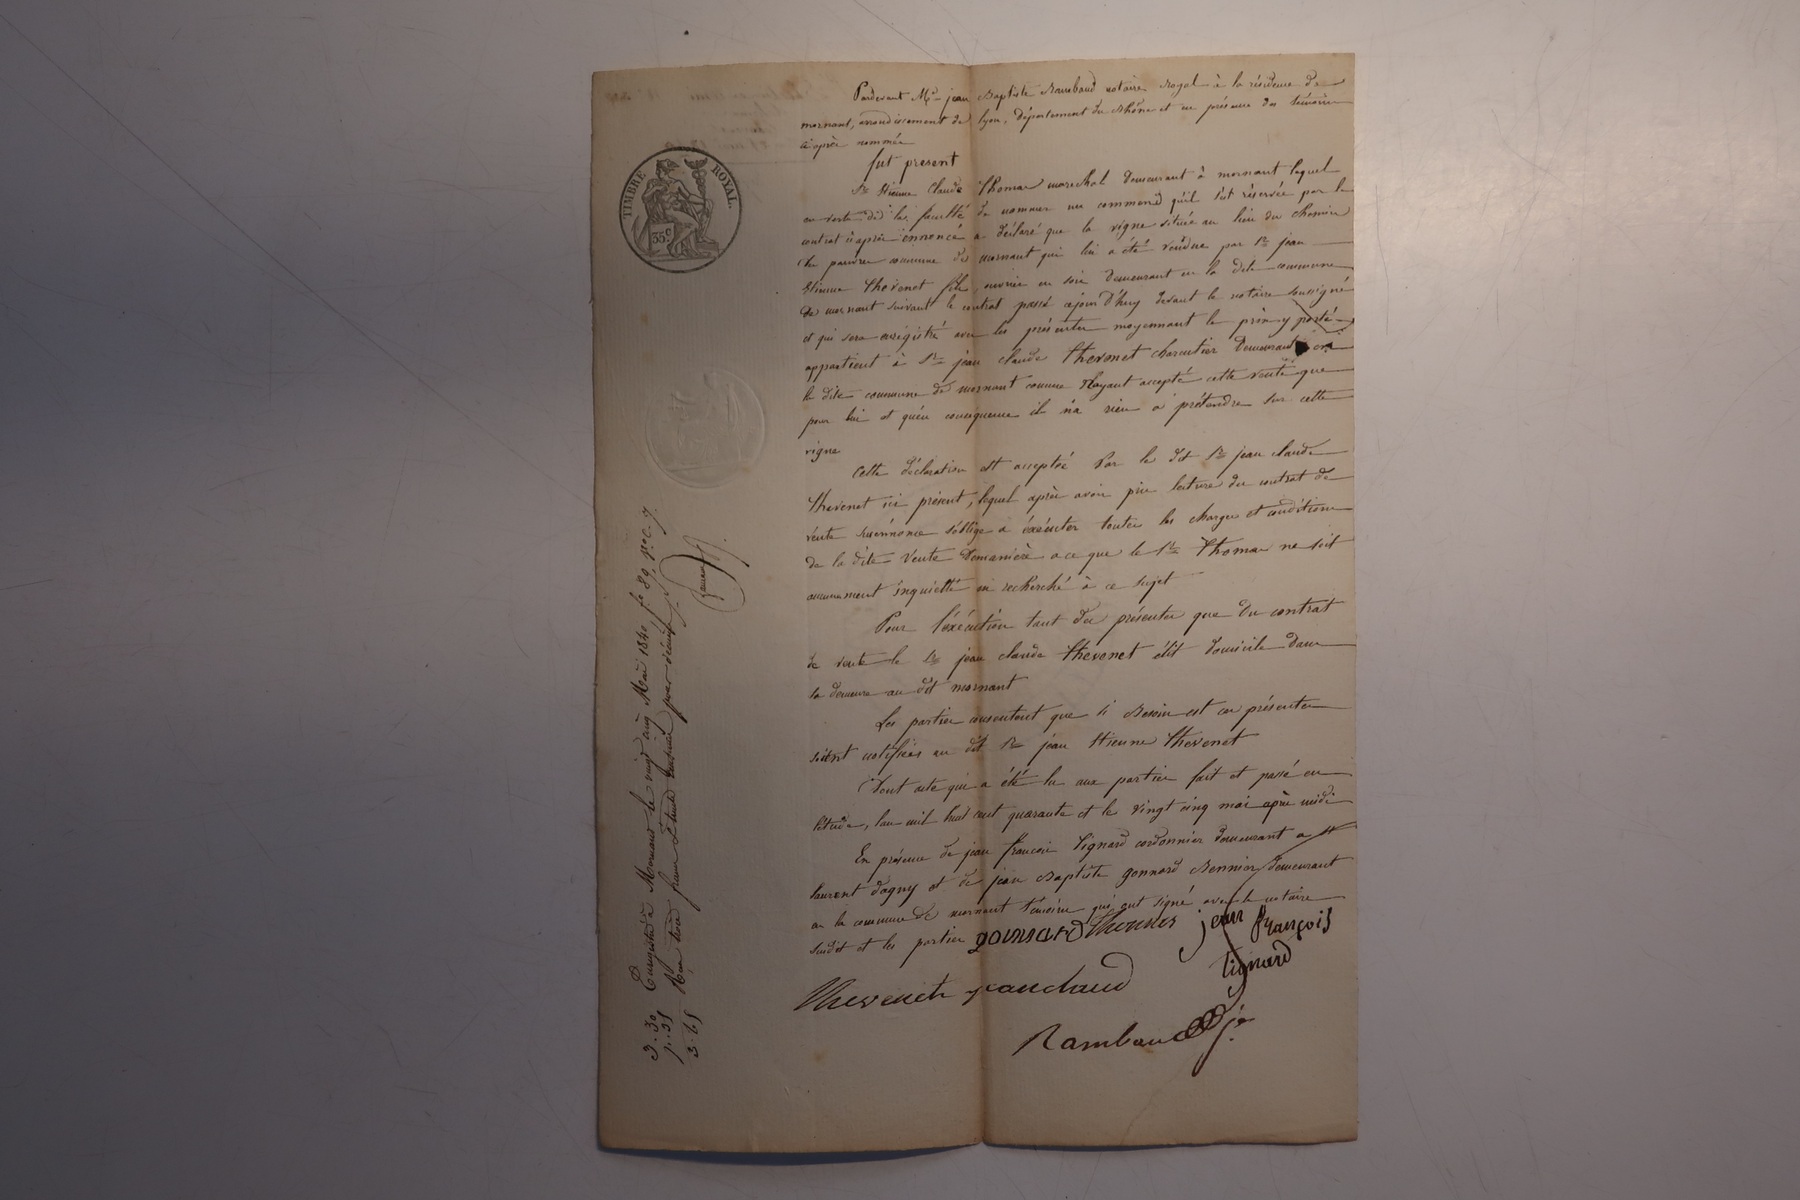 TIMBRE ROYAL.
35 c
Pardevant Me jean Baptiste Rambaud notaire Royal à la résidence de
mornant, arrondissement de lyon, département du Rhône et en présence des témoins
ci après nommés
fut present
Sr Etienne Claude Thomas marechal demeurant à mornant lequel
en vertu de la faculté de nommer un command qu'il s'est réservée par le
contrat ci après énnoncé a déclaré que la vigne située au lieu du chemin
commune de mornant qui lui a été vendue par Sr jean
Etienne thevenet fils, ouvrier en soie demeurant en la dite commune
de mornant suivant le contrat passé cejourd'huy devant le notaire soussigné
et qui sera enrégistré avec les présentes moyennant le prix y porté
appartient à Sr jean claude thevenet charcutier demeurant en
la dite commune de mornant comme n'ayant accepté cette vente que
pour lui et qu'en conséquence il n'a rien a prétendre sur cette
vigne
Cette déclaration est acceptée Par le dit Sr jean claude
thevenet ici présent, lequel après avoir pris lecture du contrat de
vente susénnoncé s'oblige a éxécuter toutes les charges et conditions
de la dite vente demanière a ce que le Sr Thomas ne soit
aucunement inquiétté ni recherché à ce sujet
Pour l'éxécution tant des présentes que du contrat
de vente le Sr jean claude thevenet élit domicile dans
sa demeure au dit mornant
Les parties consentent que si Besoin est ces présentes
soient notifiées au dit Sr jean Etienne thevenet
Dont acte qui a été lu aux parties fait et passé en
l'étude, l'an mil huit cent quarante et le vingt cinq mai après midi
En présence de jean françois Tignard cordonnier demeurant a St
laurent d'agny et de jean Baptiste gonnard demeurant
en la commune de mornant témoins qui ont signé avec le notaire
susdit et les parties gonnard Thomas jean François
Tignard
thevenet jauclaud
Rambaud je
Enregistré à Mornant le vingt cinq Mai 1840 fo 89 Ro C. 7.
Reçu trois francs trente centimes pour décime
3.30
3.65